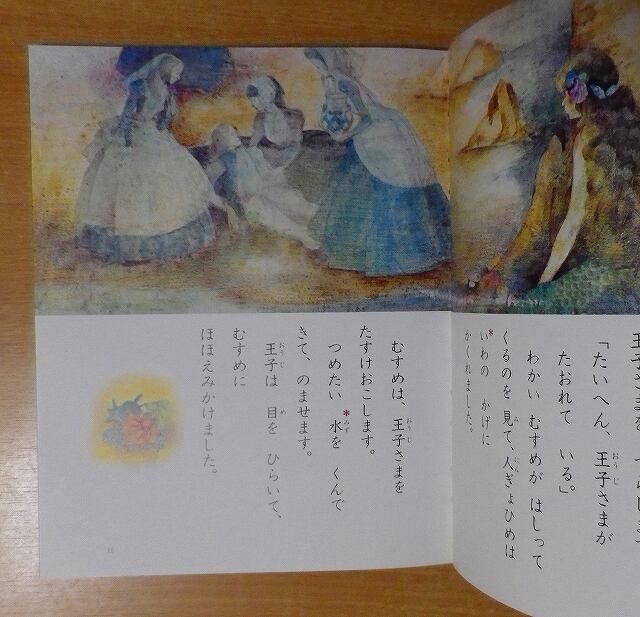 王子さまを
「たいへん、王子さまが
たおれて いる」
わかい むすめが はしって
くるのを 見て、人ぎょひめは
*いわの かげに
かくれました。
むすめは、王子さまを
たすけおこします。
つめたい *水を くんで
きて、のませます。
王子は 目を ひらいて、
むすめに
ほほえみかけました。